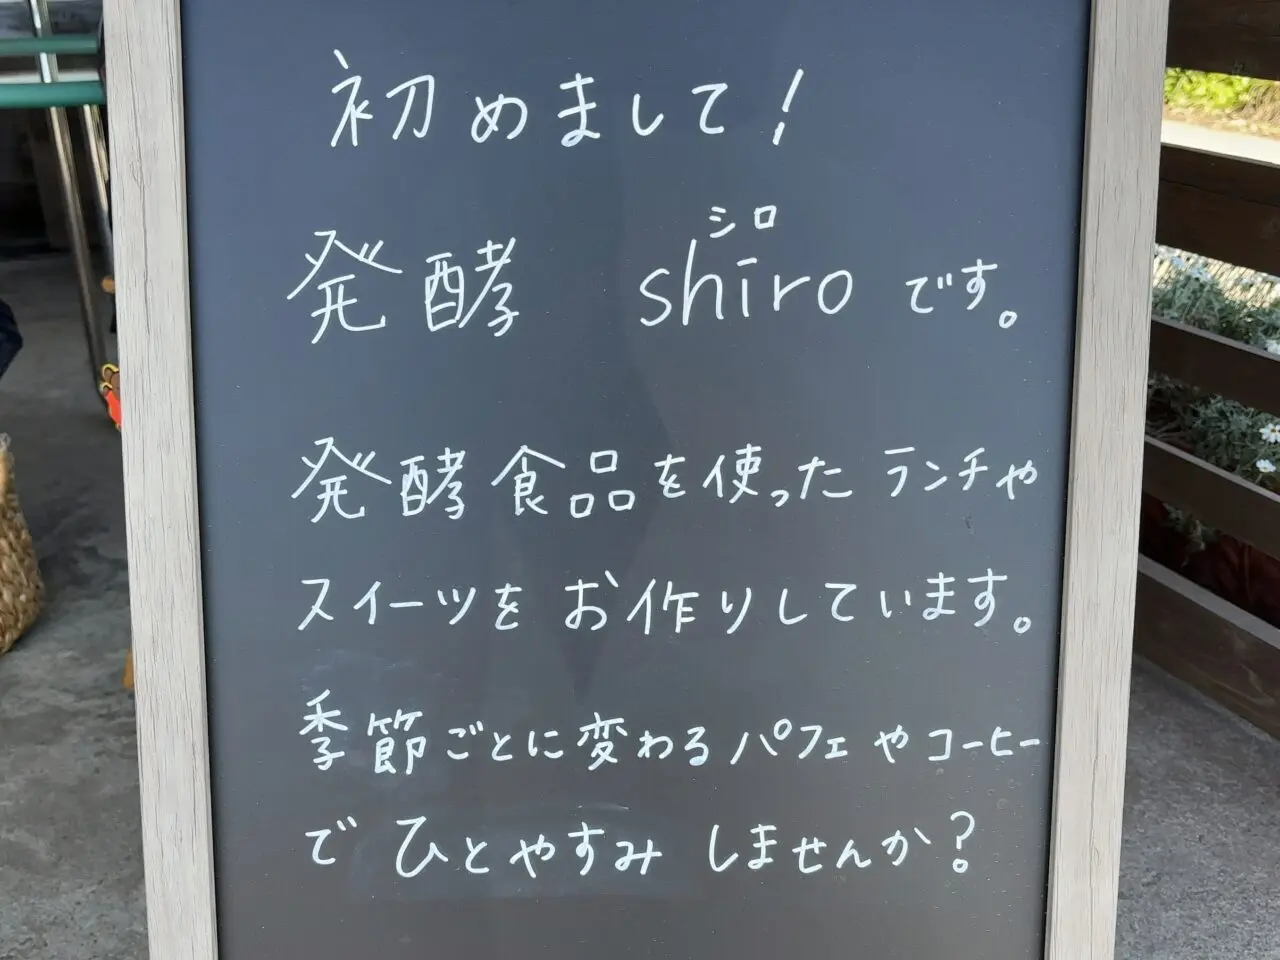 初めまして!
シロ
発酵 shiro です。
発酵食品を使ったランチや
スイーツを お作りしています。
季節ごとに変わるパフェやコーヒー
で ひとやすみ しませんか?